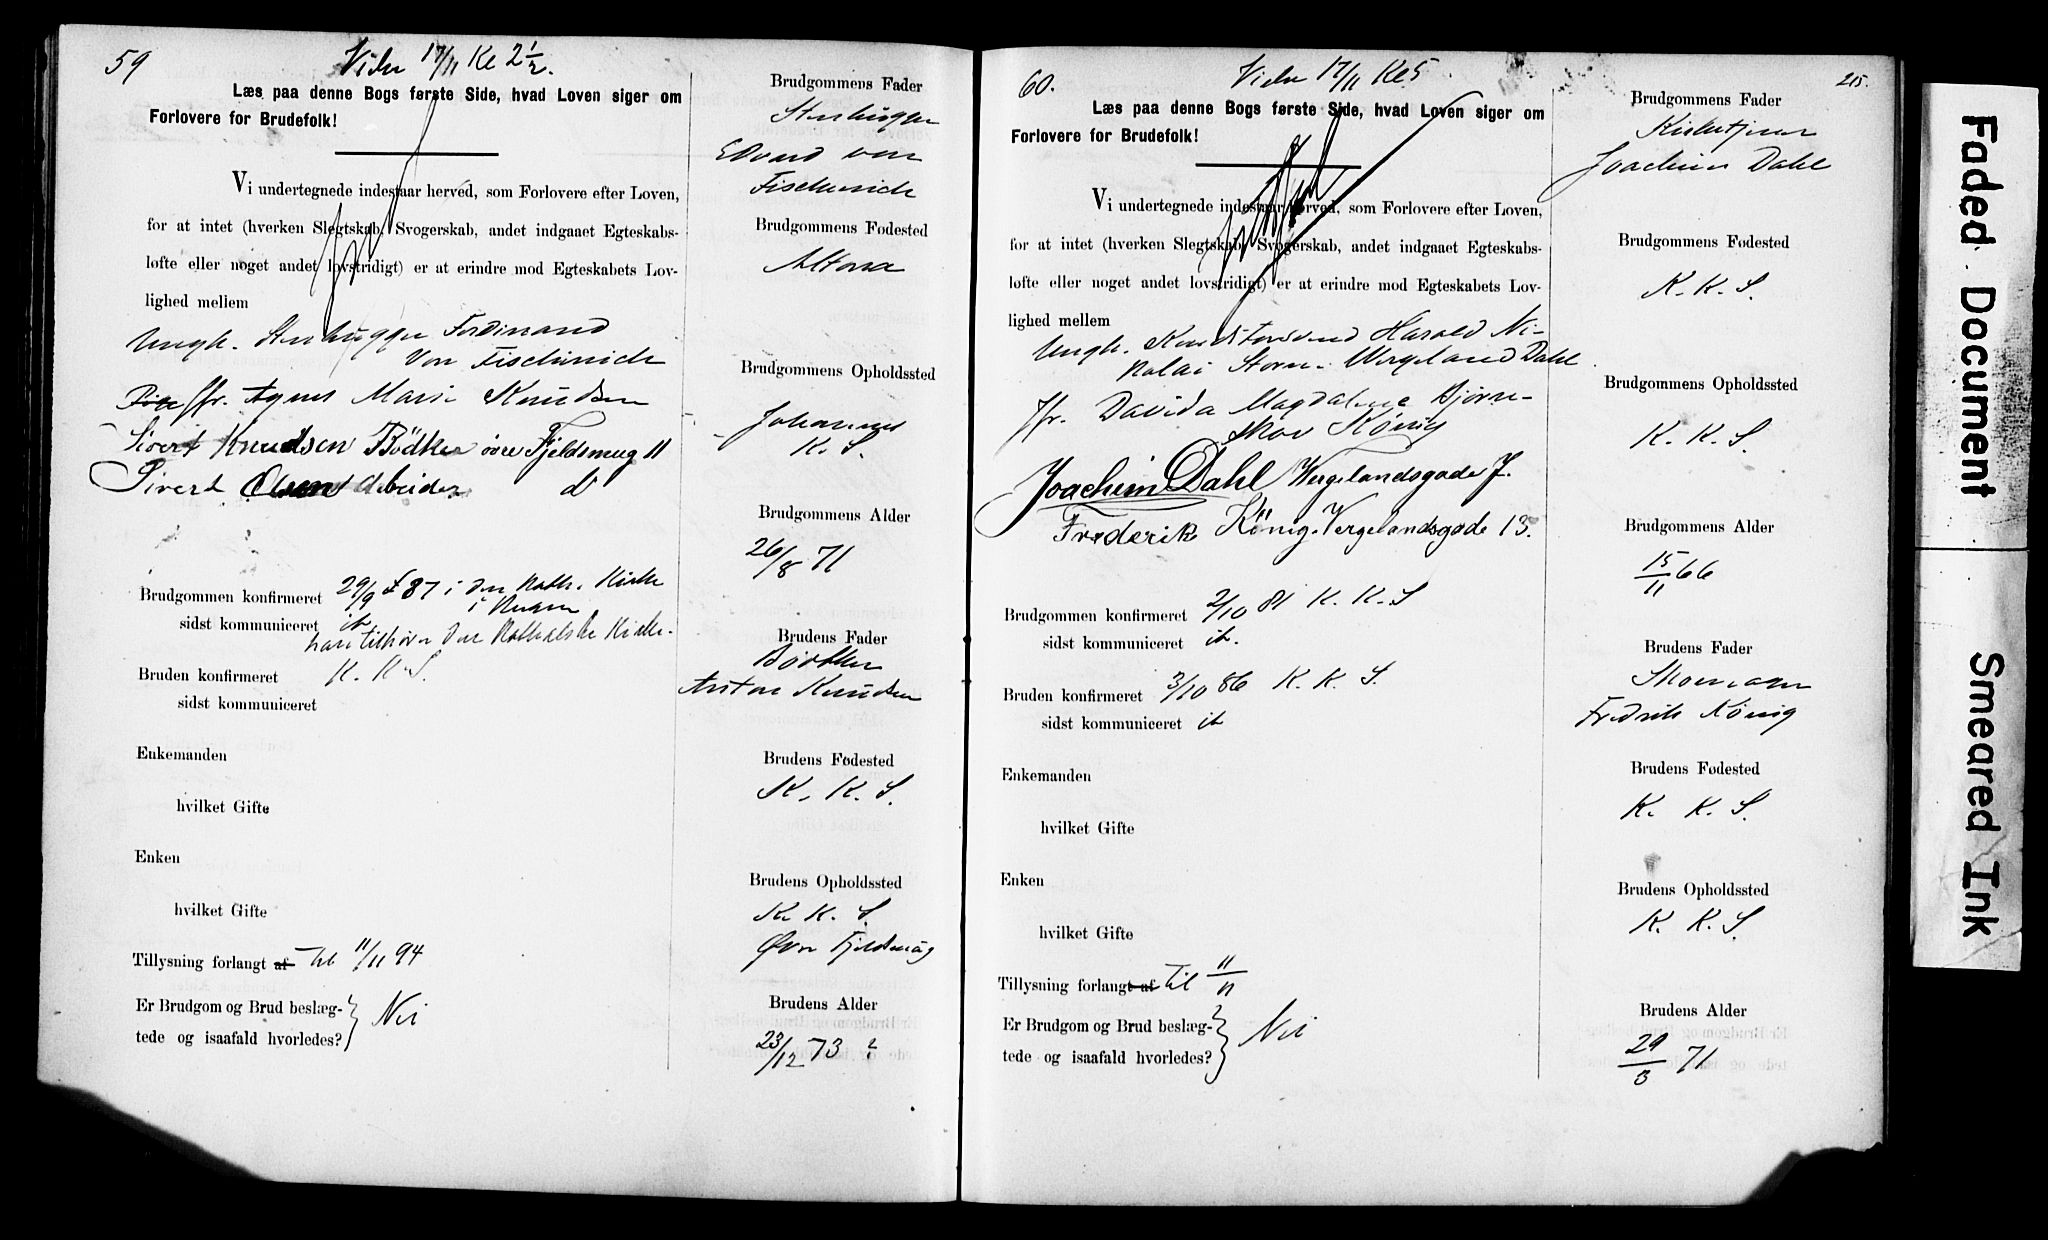 59
Vies 17/11 Kl 2 1/2.
Læs paa denne Bogs første Side, hvad Loven siger om
Forlovere for Brudefolk!
Vi undertegnede indestaar herved, som Forlovere efter Loven,
for at intet (hverken Slegtskab, Svogerskab, andet indgaaet Egteskabs-
løfte eller noget andet lovstridigt) er at erindre mod Egteskabets Lov-
lighed mellem
Ungk. Stenhugger Ferdinand
von Fischnich
Pige Jfr. Agnes Marie Knudsen
Sivert Knudsen Bödker övre Fjeldsmug 11
Sivert Olsen Arbeider do
Brudgommen konfirmeret 29/9 87 i den kath. Kirke
sidst kommuniceret
han tilhører den Katholske Kirke.
Bruden konfirmeret K. K. S.
sidst kommuniceret
Enkemanden
hvilket Gifte
Enken
hvilket Gifte
Tillysning forlangt af til 11/11 94
Er Brudgom og Brud beslæg-
tede og isaafald hvorledes? Nei
Brudgommens Fader
Stenhugger
Edvard von
Fischnich
Brudgommens Fødested
Altona
Brudgommens Opholdssted
Johannes
K. S.
Brudgommens Alder
26/8 71
Brudens Fader
Bødker
Anton Knudsen
Brudens Fødested
K. K. S.
Brudens Opholdssted
K. K. S.
Øvre Fjeldsmug
Brudens Alder
23/12 73 ?
60.
Vies 17/11 Kl 5
215.
Læs paa denne Bogs første Side, hvad Loven siger om
Forlovere for Brudefolk!
Vi undertegnede indestaar herved, som Forlovere efter Loven,
for at intet (hverken Slegtskab, Svogerskab, andet indgaaet Egteskabs-
løfte eller noget andet lovstridigt) er at erindre mod Egteskabets Lov-
lighed mellem
Ungk. Harald Ni-
kolai Storm Wergeland Dahl
Jfr. Davida Magdalene Bjørne-
skov König
Joachim Dahl Wergelandsgade 7.
Frederik König Vergelandsgade 13.
Brudgommen konfirmeret 2/10 81 K. K. S
sidst kommuniceret it.
Bruden konfirmeret 3/10 86 K. K. S.
sidst kommuniceret it
Enkemanden
hvilket Gifte
Enken
hvilket Gifte
Tillysning forlangt af til 11/11
Er Brudgom og Brud beslæg-
tede og isaafald hvorledes? Nei
Brudgommens Fader
Kirketjener
Joachim Dahl
Brudgommens Fødested
K. K. S.
Brudgommens Opholdssted
K. K. S.
Brudgommens Alder
15/11 66
Brudens Fader
Skomager
Fredrik König
Brudens Fødested
K. K. S.
Brudens Opholdssted
K. K. S.
Brudens Alder
29/3 71
Faded Document
Smeared Ink